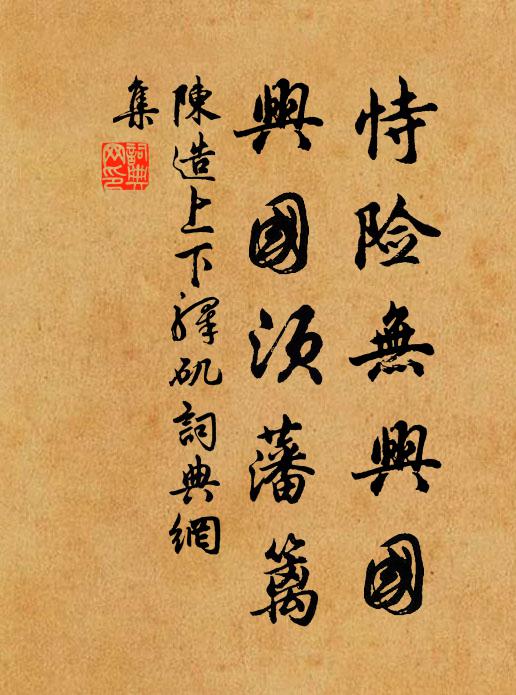 恃險無興國
興國須藩籬
陳造上下釋矶詞典網
集
詞典網印